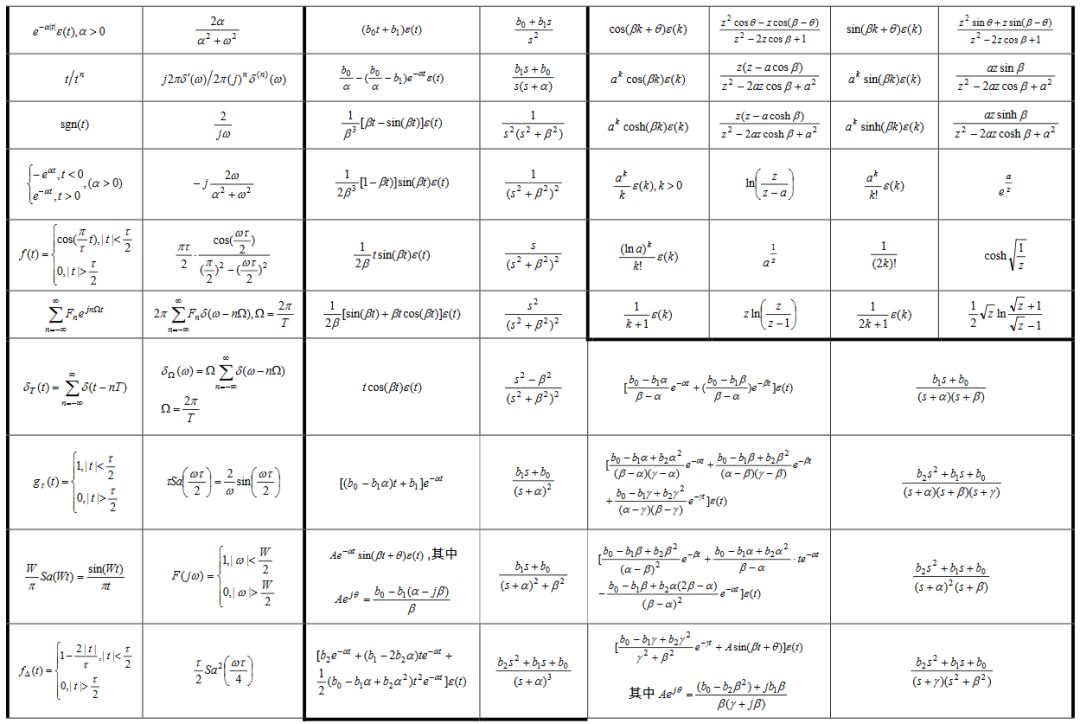 e^{-α|t|}ε(t), α > 0
2α/(α² + ω²)
(b₀t + b₁)ε(t)
(b₀ + b₁s)/s²
cos(βk + θ)ε(k)
(z² cos θ − z cos(β − θ))/(z² − 2z cos β + 1)
sin(βk + θ)ε(k)
(z² sin θ + z sin(β − θ))/(z² − 2z cos β + 1)
t/tⁿ
j2πδ′(ω)/2π(j)ⁿδ^{(n)}(ω)
b₀/α − (b₀/α − b₁)e^{-αt}ε(t)
(b₁s + b₀)/(s(s + α))
a^k cos(βk)ε(k)
z(z − a cos β)/(z² − 2az cos β + a²)
a^k sin(βk)ε(k)
az sin β/(z² − 2az cos β + a²)
sgn(t)
2/(jω)
1/β³ [βt − sin(βt)]ε(t)
1/(s²(s² + β²))
a^k cosh(βk)ε(k)
z(z − a cosh β)/(z² − 2az cosh β + a²)
a^k sinh(βk)ε(k)
az sinh β/(z² − 2az cosh β + a²)
{−e^{αt}, t < 0
e^{-αt}, t > 0, (α > 0)
−j 2ω/(α² + ω²)
1/(2β³) [1 − βt)]sin(βt)ε(t)
1/(s² + β²)²
a^k/k ε(k), k > 0
ln(z/(z − a))
a^k/k! ε(k)
e^{a/z}
f(t) = {cos(π/τ t), |t| < τ/2
0, |t| > τ/2
πτ/2 · cos(ωτ/2)/((π/2)² − (ωτ/2)²)
1/(2β) t sin(βt)ε(t)
s/(s² + β²)²
(ln a)^k/k! ε(k)
a^{1/z}
1/(2k)!
cosh √(1/z)
∑_{n=−∞}^{∞} Fₙe^{jnΩt}
2π ∑_{n=−∞}^{∞} Fₙδ(ω − nΩ), Ω = 2π/T
1/(2β) [sin(βt) + βt cos(βt)]ε(t)
s²/(s² + β²)²
1/(k+1) ε(k)
z ln(z/(z − 1))
1/(2k+1) ε(k)
1/2 √z ln (√z + 1)/(√z − 1)
δ_T(t) = ∑_{n=−∞}^{∞} δ(t − nT)
δ_Ω(ω) = Ω ∑_{n=−∞}^{∞} δ(ω − nΩ)
Ω = 2π/T
t cos(βt)ε(t)
(s² − β²)/(s² + β²)²
[(b₀ − b₁α)/(β − α) e^{-αt} + ((b₀ − b₁β)/(β − α))e^{-βt}]ε(t)
(b₁s + b₀)/((s + α)(s + β))
g_τ(t) = {1, |t| < τ/2
0, |t| > τ/2
τSa(ωτ/2) = 2/ω sin(ωτ/2)
[(b₀ − b₁α)t + b₁]e^{-αt}
(b₁s + b₀)/(s + α)²
[(b₀ − b₁α + b₂α²)/((β − α)(γ − α)) e^{-αt} + (b₀ − b₁β + b₂β²)/((α − β)(γ − β)) e^{-βt}
+ (b₀ − b₁γ + b₂γ²)/((α − γ)(β − γ)) e^{-γt}]ε(t)
(b₂s² + b₁s + b₀)/((s + α)(s + β)(s + γ))
W/π Sa(Wt) = sin(Wt)/(πt)
F(jω) = {1, |ω| < W/2
0, |ω| > W/2
Ae^{-αt} sin(βt + θ)ε(t) ,其中
Ae^{jθ} = (b₀ − b₁(α − jβ))/β
(b₁s + b₀)/((s + α)² + β²)
[(b₀ − b₁β + b₂β²)/(α − β)² e^{-βt} + (b₀ − b₁α + b₂α²)/(β − α) · te^{-αt}
− (b₀ − b₁β + b₂α(2β − α))/(β − α)² e^{-αt}]ε(t)
(b₂s² + b₁s + b₀)/((s + α)²(s + β))
f_Δ(t) = {1 − 2|t|/τ, |t| < τ/2
0, |t| > τ/2
τ/2 Sa²(ωτ/4)
[b₂e^{-αt} + (b₁ − 2b₂α)te^{-αt} +
1/2 (b₀ − b₁α + b₂α²)t²e^{-αt}]ε(t)
(b₂s² + b₁s + b₀)/(s + α)³
[(b₀ − b₁γ + b₂γ²)/(γ² + β²) e^{-γt} + A sin(βt + θ)]ε(t)
其中 Ae^{jθ} = ((b₀ − b₂β²) + jb₁β)/(β(γ + jβ))
(b₂s² + b₁s + b₀)/((s + γ)(s² + β²))